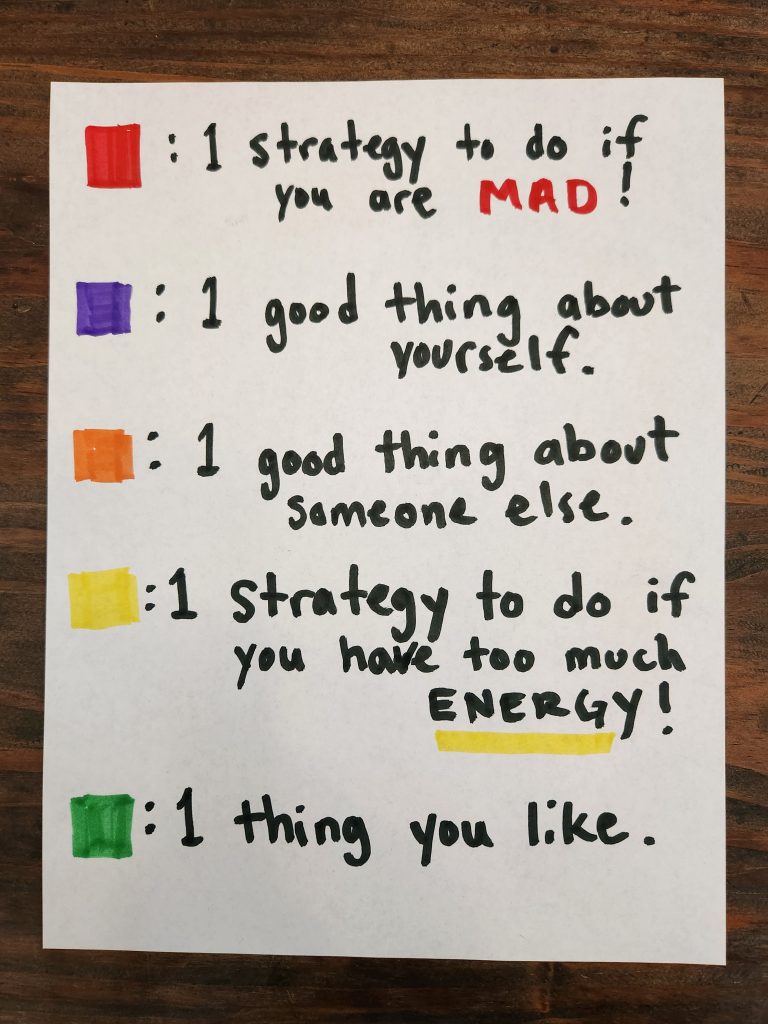 : 1 strategy to do if
you are MAD!
: 1 good thing about
yourself.
: 1 good thing about
someone else.
: 1 strategy to do if
you have too much
ENERGY!
: 1 thing you like.